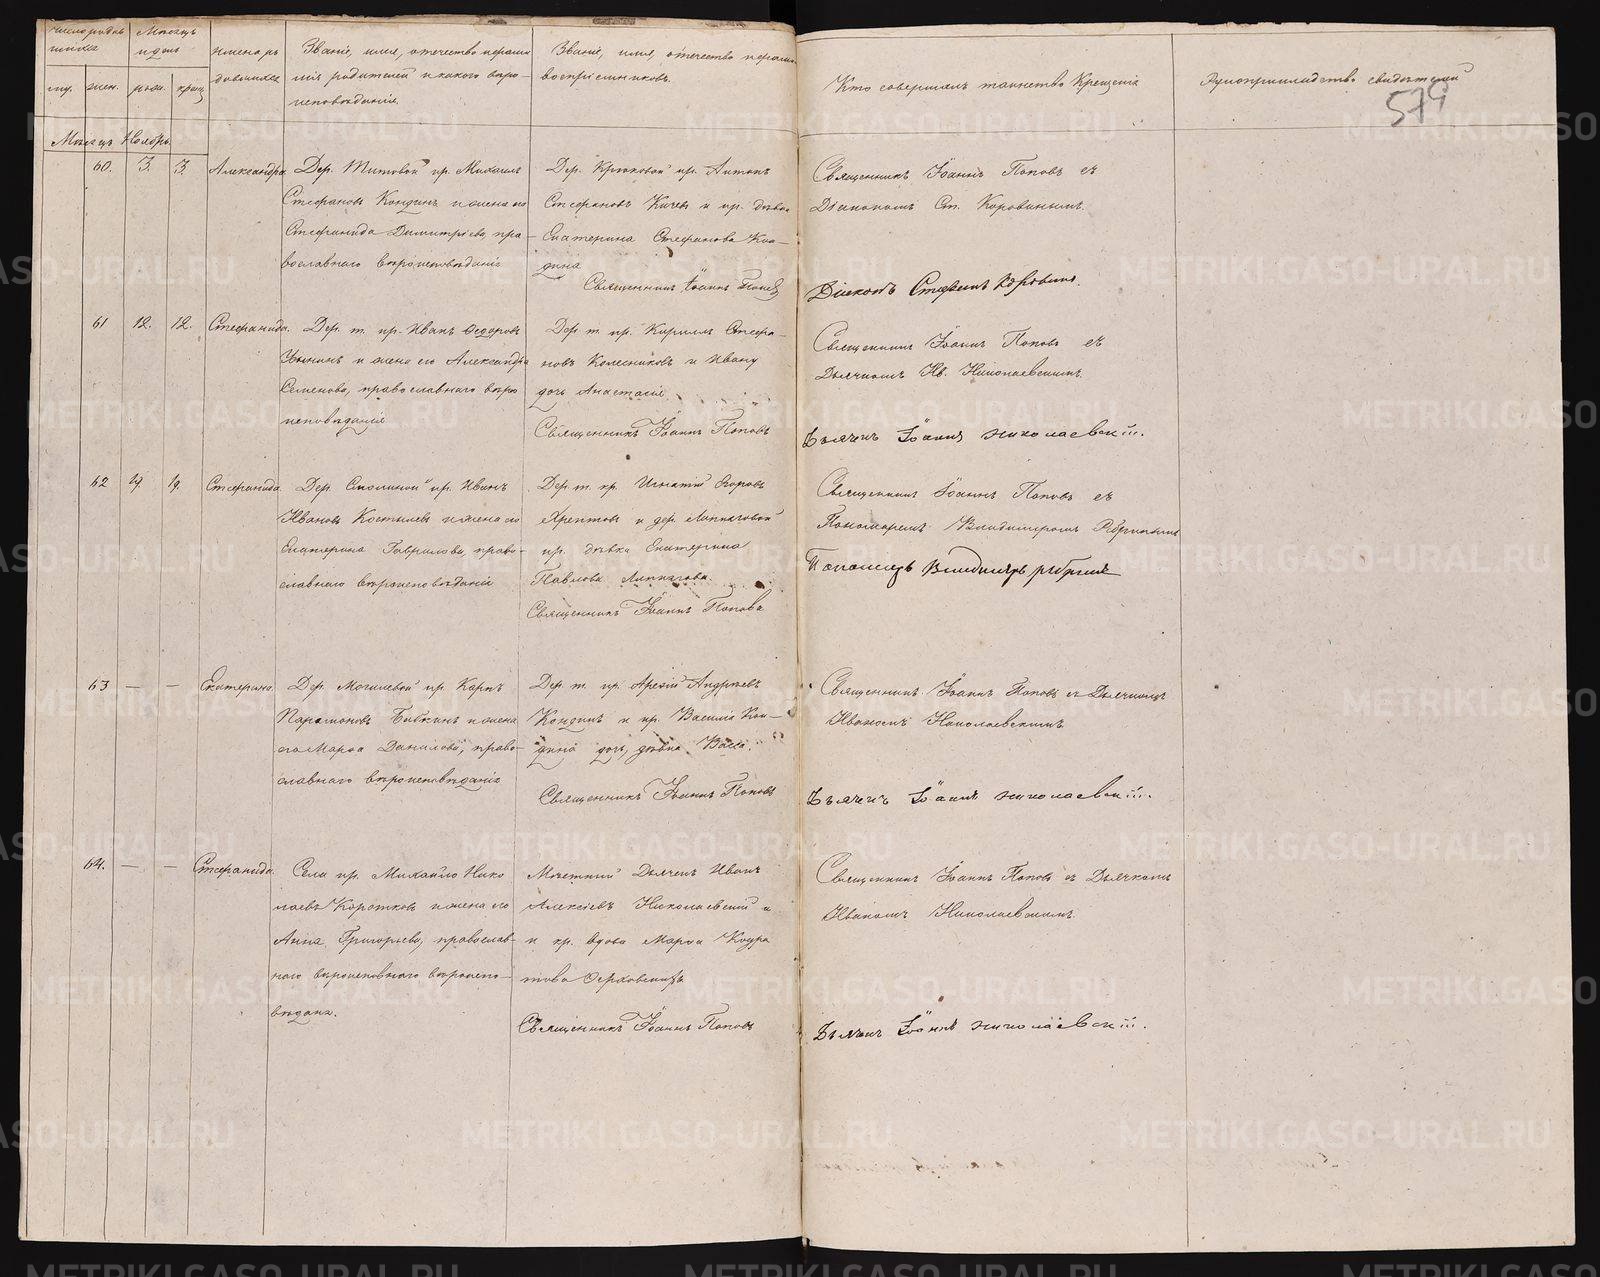 Число родив
шихся
Месяцъ
и день
Имена ро
дившихся
Званіе, имя, отечество и фами
лія родителей и какого вѣро-
исповѣданія.
Званіе, имя, отечество и фамил.
воспріемниковъ.
Кто совершалъ таинство Крещенія
Рукоприкладство свидѣтелей
му. жен. рожд. крещ.
579
Мѣсяцъ Ноябрь.
60. 3. 3. Александра.
Дер. Титовой кр. Михаилъ
Стефановъ Кондинъ и жена его
Стефанида Димитріева, пра-
вославнаго вѣроисповѣданія
Дер. Крюковой кр. Антонъ
Стефановъ Кичевъ и кр. дѣвка
Екатерина Стефанова Кон-
дина
Священникъ Іоаннъ Поповъ
Священникъ Іоаннъ Поповъ съ
Діакономъ Ст. Коровинымъ.
Діаконъ Стефанъ Коровинъ.
61 12. 12. Стефанида.
Дер. т. кр. Иванъ Федоровъ
и жена его Александра
Семенова, православнаго вѣро
исповѣданія
Дер. т. кр. Кириллъ Стефа-
новъ Колесниковъ и Ивану
дочь Анастасія.
Священникъ Іоаннъ Поповъ
Священникъ Іоаннъ Поповъ съ
Дьячкомъ Ив. Николаевскимъ.
Дьячекъ Іоаннъ Николаевскій.
62 19 19. Стефанида.
Дер. Смолиной кр. Иванъ
Ивановъ Костылевъ и жена его
Екатерина Гаврилова, право-
славнаго вѣроисповѣданія
Дер. т. кр. Игнатій
и дер. Липниговой
кр. дѣвка Екатерина
Павлова
Священникъ Іоаннъ Поповъ
Священникъ Іоаннъ Поповъ съ
Пономаремъ Владимиромъ
Пономарь Владимиръ
63 — — Екатерина.
Дер. Могилевой кр. Карпъ
Парамоновъ Бабкинъ и жена
его Марѳа Данилова, право-
славнаго вѣроисповѣданія
Дер. т. кр. Андреевъ
Кондинъ и кр. Василія Кон-
дина дочь, дѣвка Васса.
Священникъ Іоаннъ Поповъ
Священникъ Іоаннъ Поповъ съ Дьячкомъ
Иваномъ Николаевскимъ
Дьячекъ Іоаннъ Николаевскій.
64. — — Стефанида.
Села кр. Михайло Нико
лаевъ Коротковъ и жена его
Анна Григорьева, православ-
наго вѣроисповнаго вѣроиспо-
вѣдана.
Мѣстный Дьячекъ Иванъ
Алексѣевъ Николаевскій и
и кр. вдова Марѳа Кодра
това
Священникъ Іоаннъ Поповъ
Священникъ Іоаннъ Поповъ съ Дьячкомъ
Иваномъ Николаевскимъ.
Дьячекъ Іоаннъ Николаевскій.
METRIKI.GASO-URAL.RU